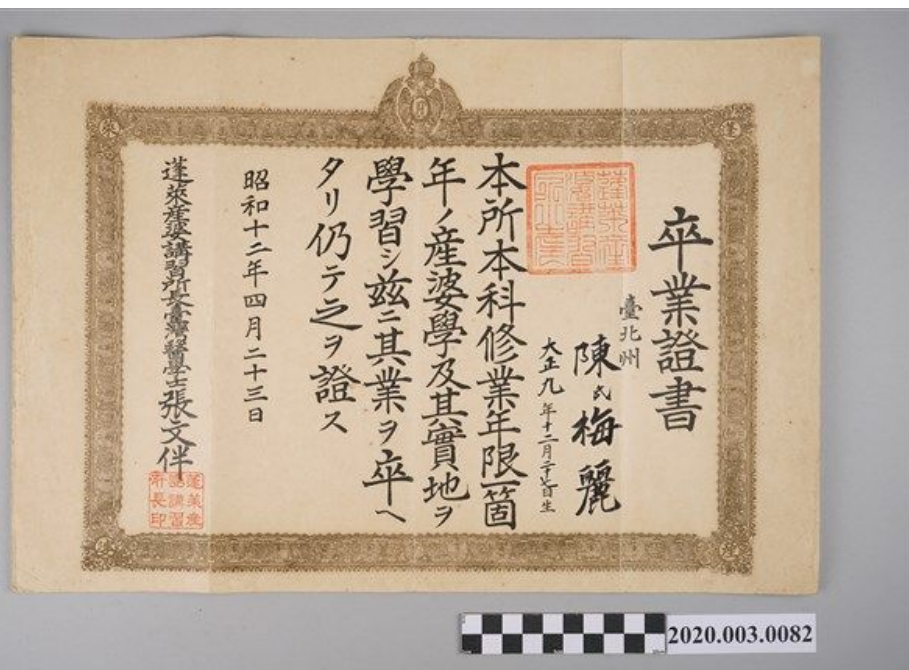 卒業證書
臺北州
陳氏梅麗
大正九年十二月二十七日生
本所本科修業年限一箇
年ノ産婆學及其實地ヲ
學習シ玆ニ其業ヲ卒ヘ
タリ仍テ之ヲ證ス
昭和十二年四月二十三日
蓬萊産婆講習所長臺灣醫學士張文伴
蓬萊産
婆講習
所長印
2020.003.0082